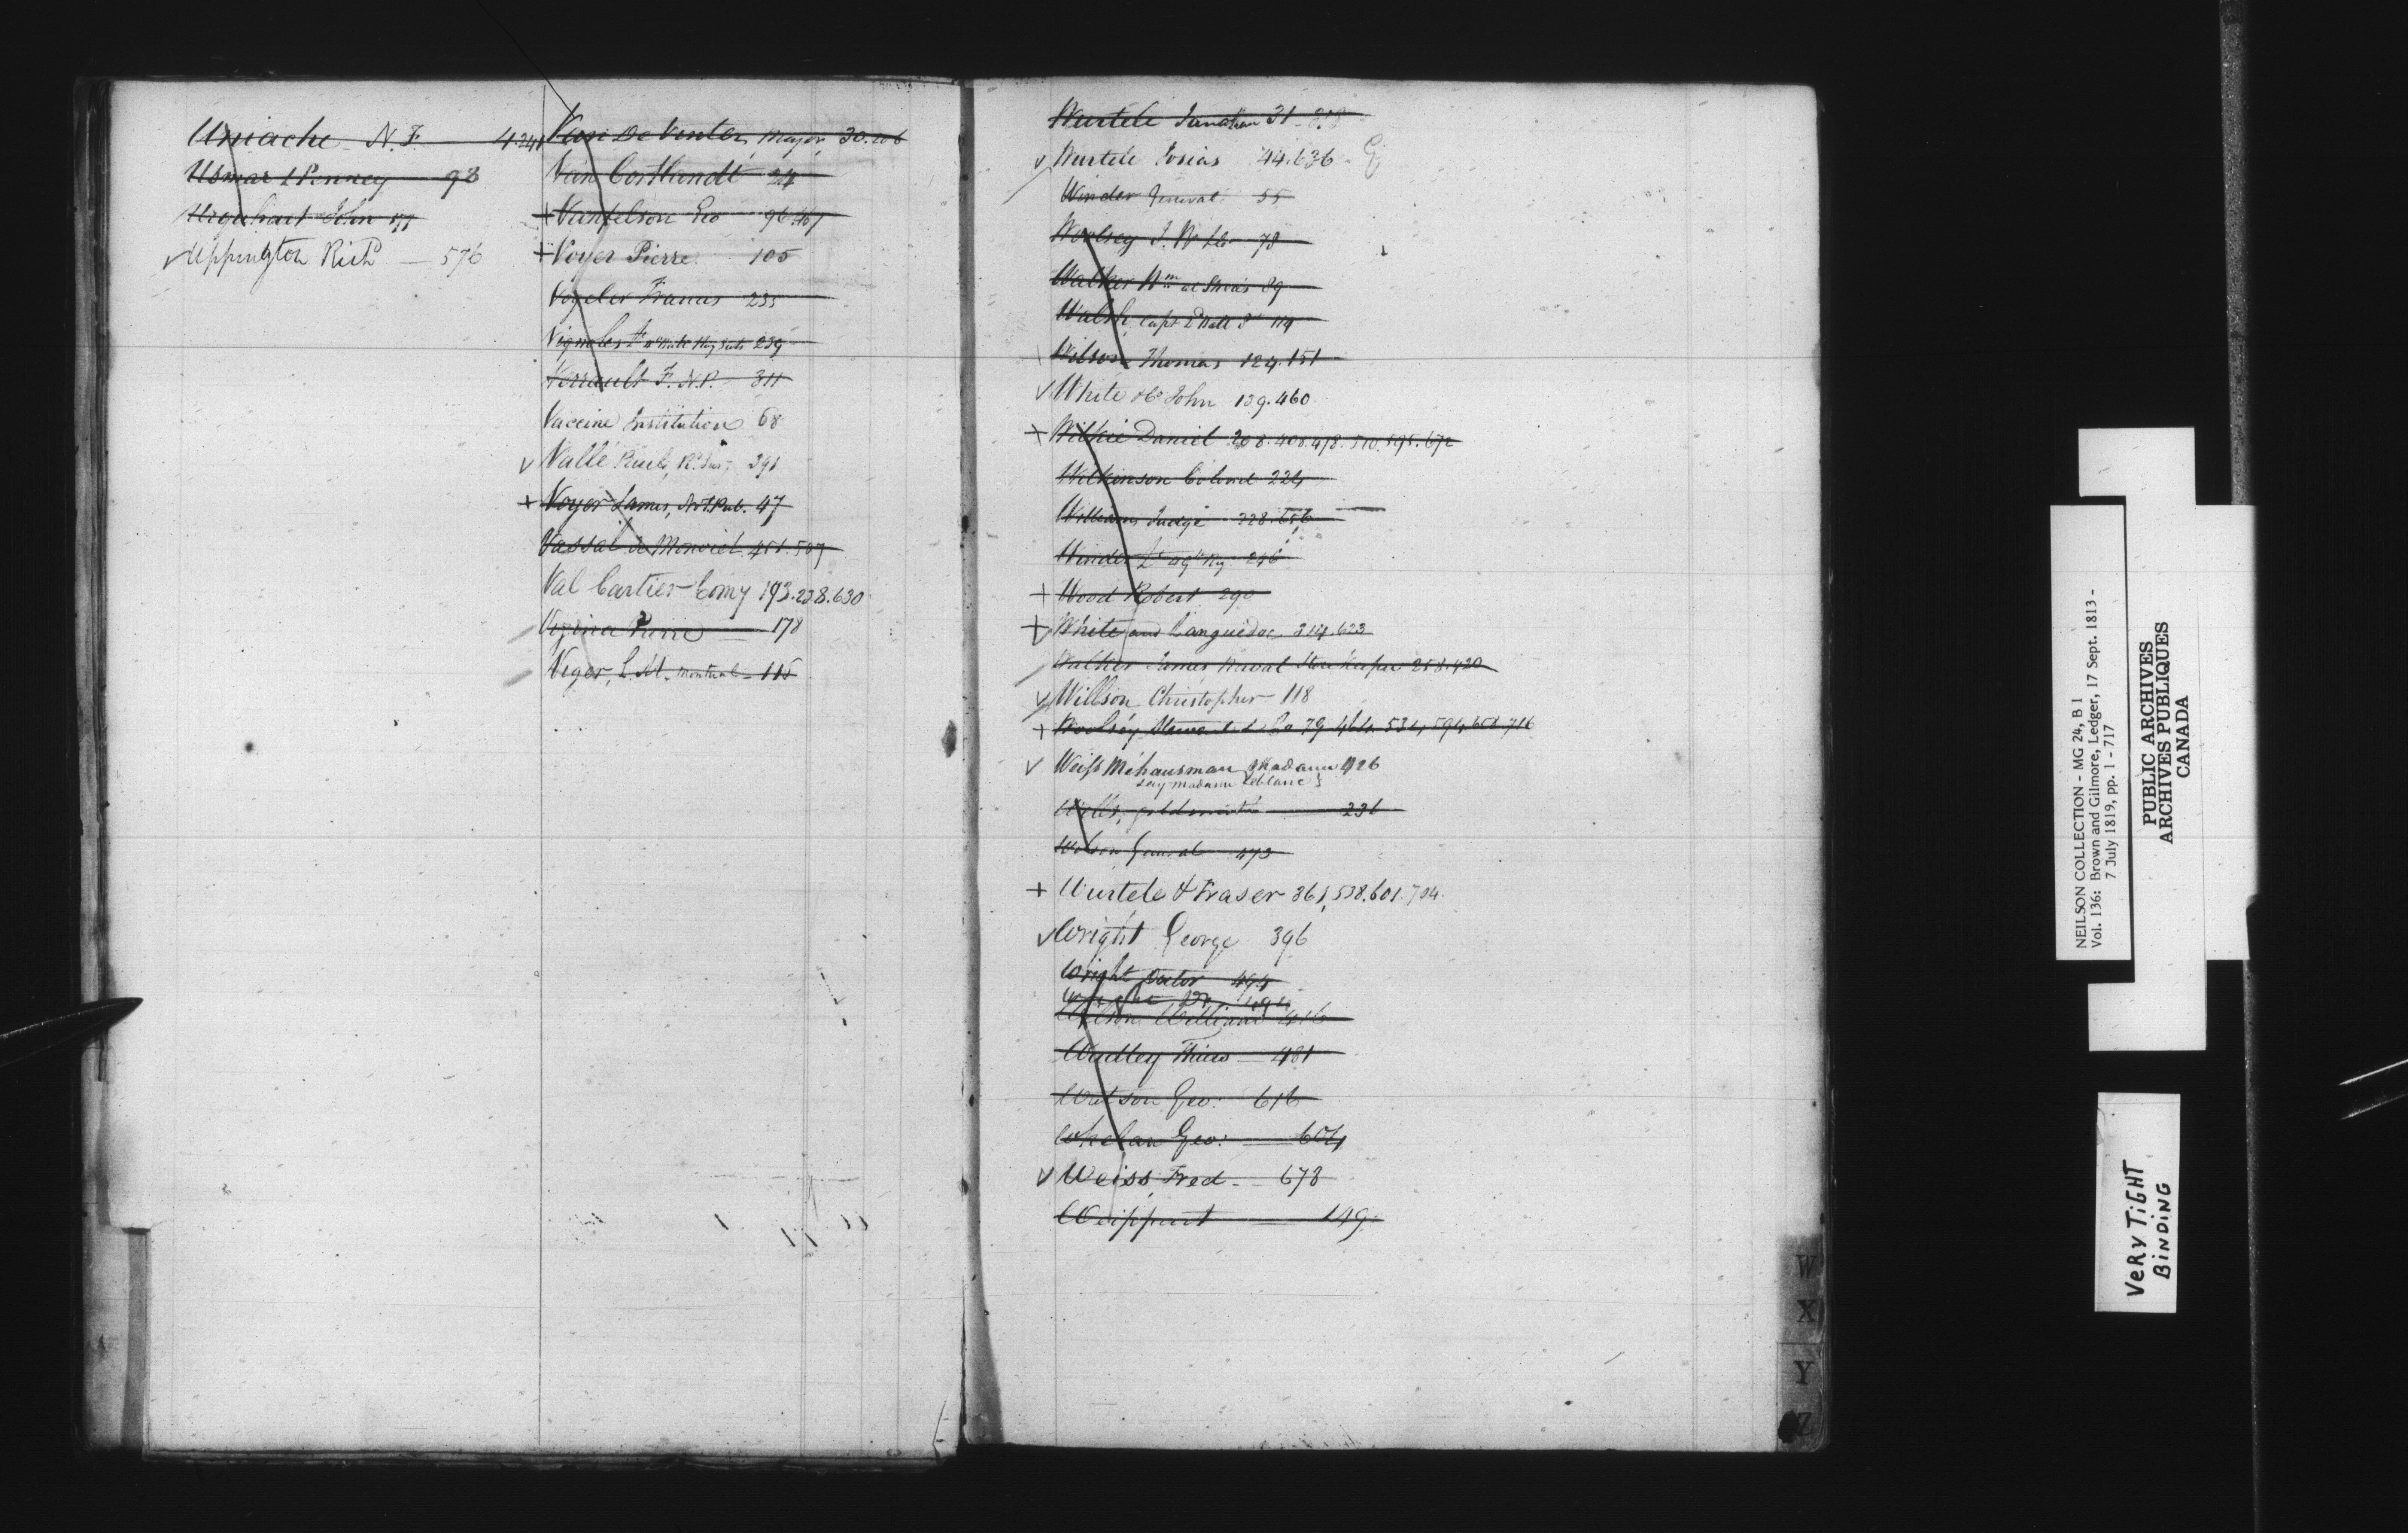 Uniacke N. F. 4.241
Usmar & Penney 98
Urquhart John 177
Uppington Richd 576
Van De Venter, Major, 30.206
Van Cortlandt 24
Vanfelson Geo 96.467
Voyer Pierre 105
Vogeler Francis 235
Vignoles 239
Verrault F. N.P. 311
Vaccine Institution 68
Vallé Paul, 391
Voyer James, Not. Pub. 47
Vassal de Monviel 451.507
Val Cartier Comy 193.238.630
Vezina Pierre 178
Viger, L. M. Montreal 115
Wurtele Jonathan 31
Wurtele Josias 44.636
Winder General 55
Woolsey J. W. 78
Walker Wm 89
Walsh, Capt 114
Wilson Thomas 124.151
White & Co John 139.460
Wilkie Daniel 208.408.478.510.595.672
Wilkinson Colonel 224
Williams Judge 328.656
Winder 246
Wood Robert 290
White and Languedoc 314.623
Walker James Naval Store Keeper 258.420
Willson Christopher 118
Woolsey Stewart & Co 79 464. 534, 594, 658 716
Weiss Méhausman Madame 426
Madame Leblanc
Wells, goldsmith 236
Wilson General 473
Wurtele & Fraser 361, 538.601.704
Wright George 396
Wright Doctor 494
Wright Dr. 494
Wilson William 416
Wadley 481
Watson Geo: 616
Whelan Geo: 604
Weiss Fred. 678
Weippert 149
W
X
Y
Z
NEILSON COLLECTION - MG 24, B 1
Vol. 136: Brown and Gilmore, Ledger, 17 Sept. 1813 -
7 July 1819, pp. 1 - 717
PUBLIC ARCHIVES
ARCHIVES PUBLIQUES
CANADA
VERY TIGHT
BINDING